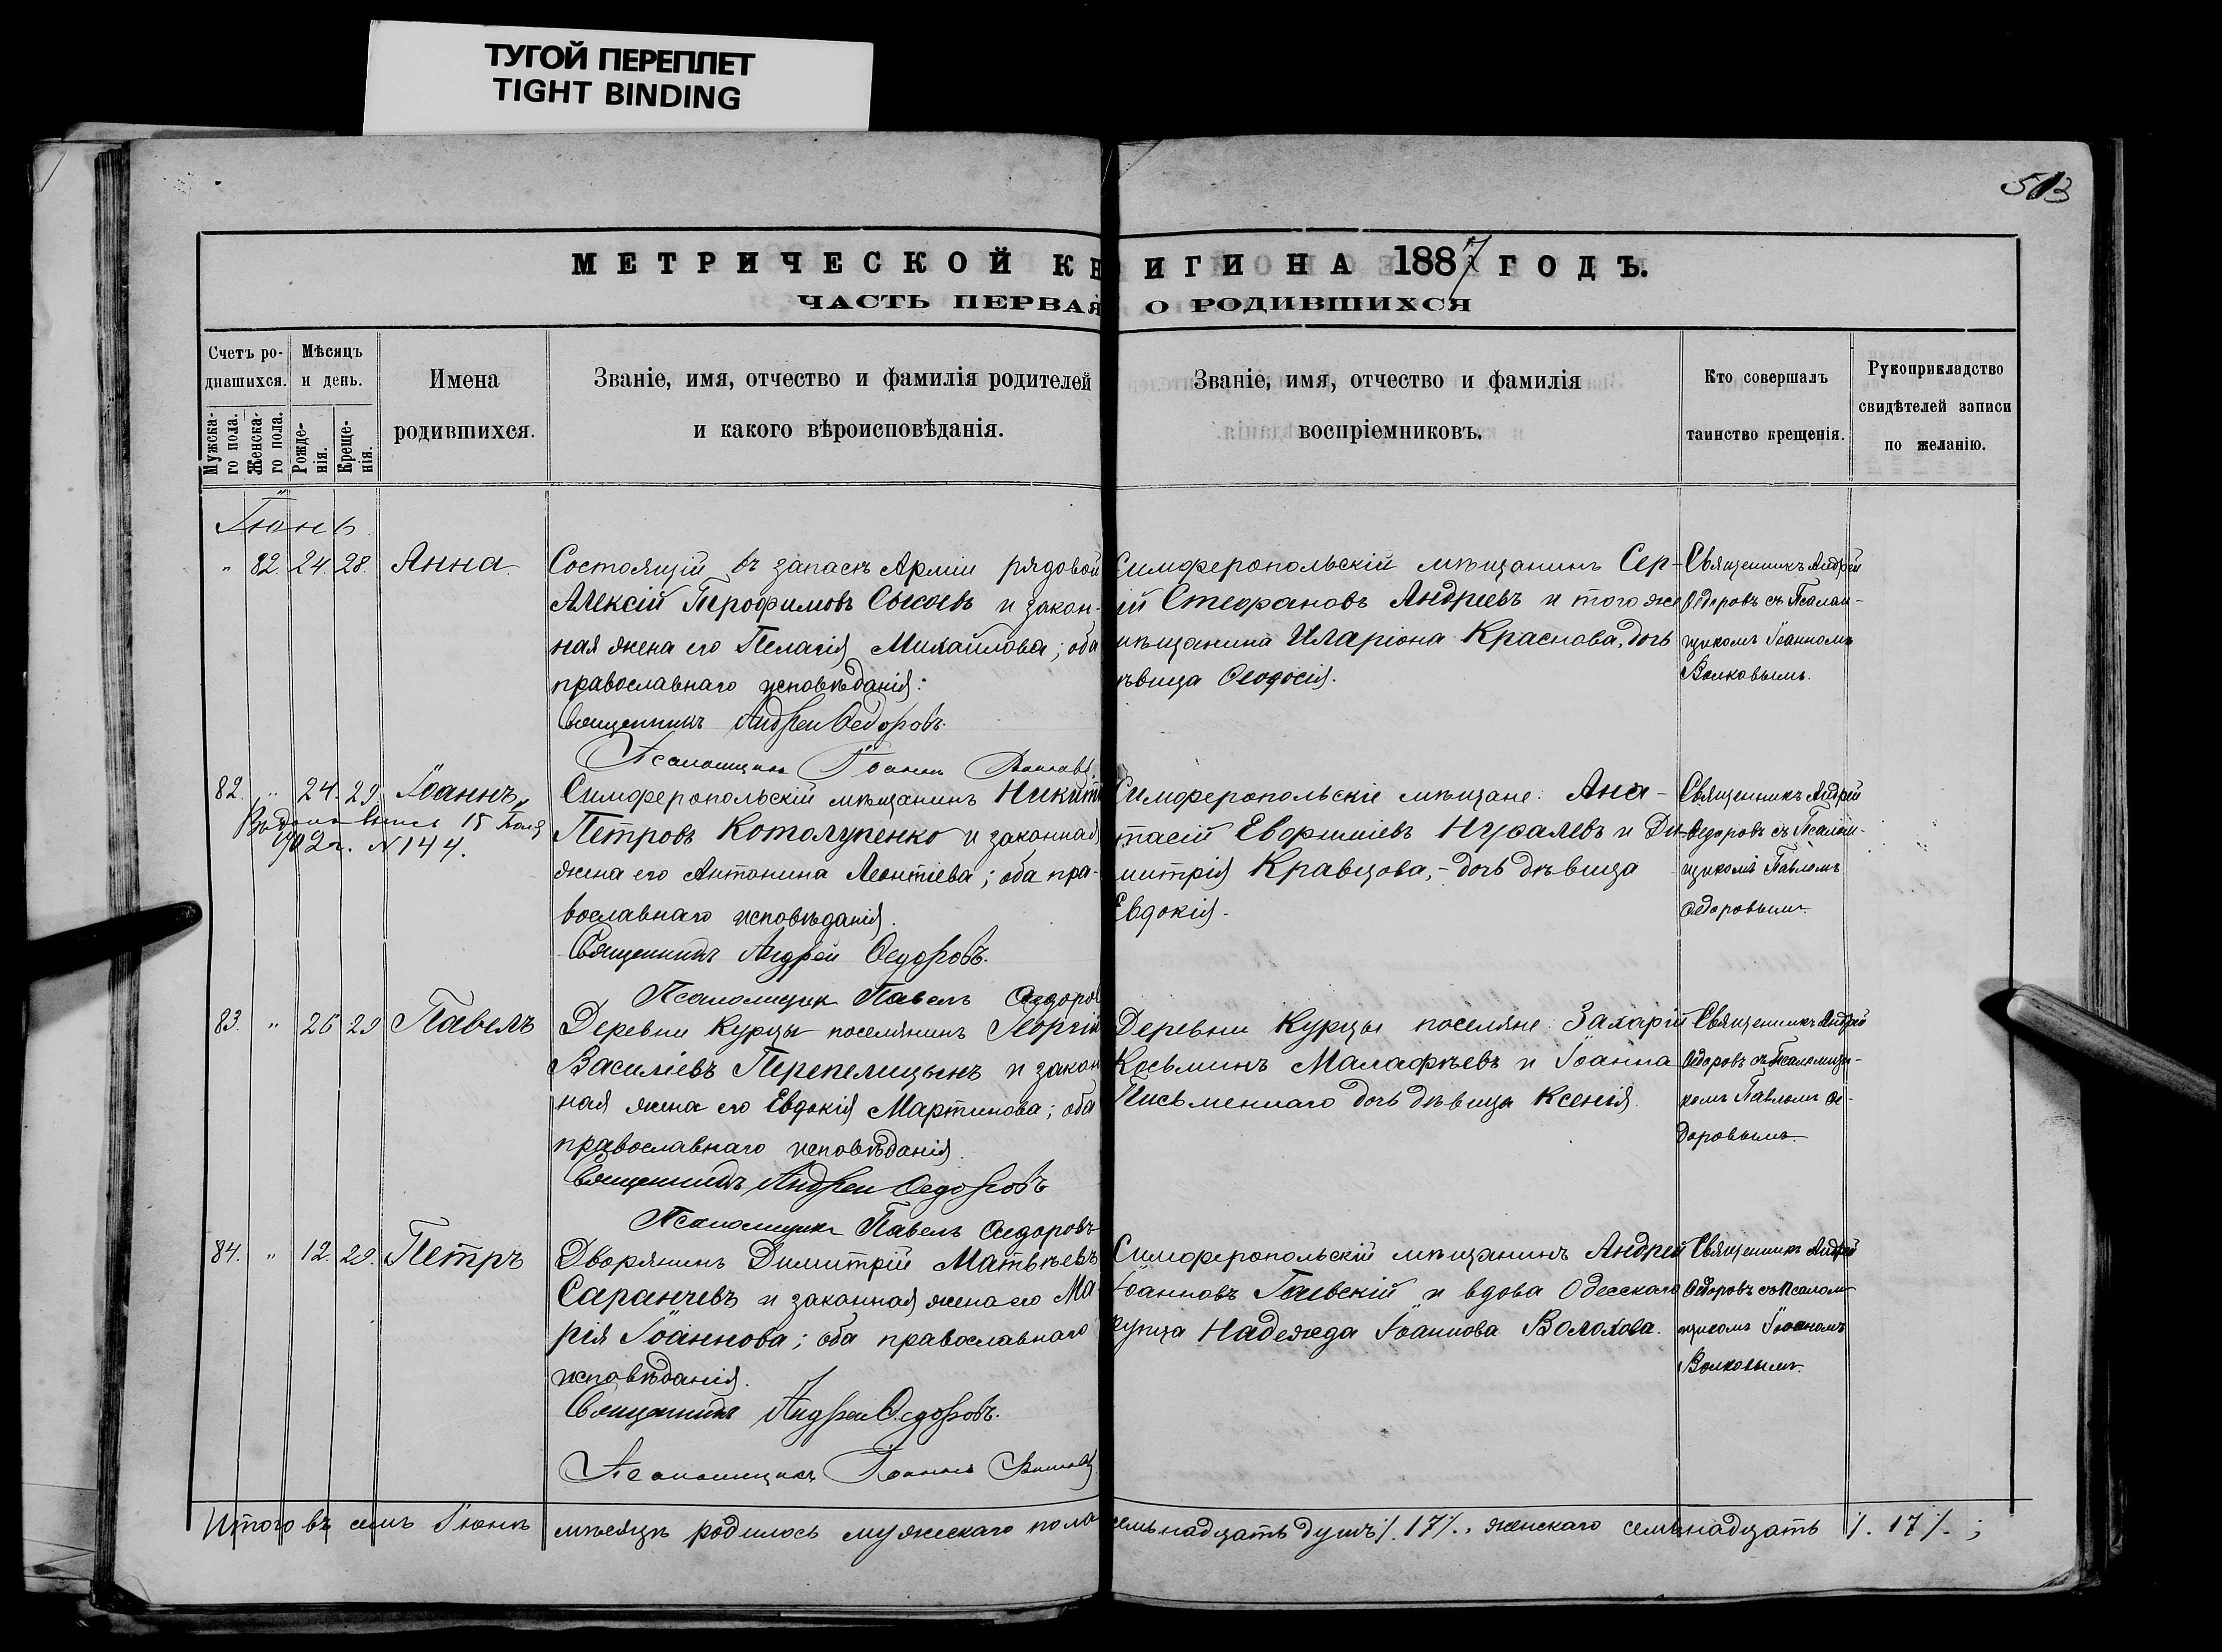 ТУГОЙ ПЕРЕПЛЕТ
TIGHT BINDING
513
МЕТРИЧЕСКОЙ КНИГИ НА 1887 ГОДЪ.
ЧАСТЬ ПЕРВАЯ О РОДИВШИХСЯ
Счетъ ро-
дившихся.
Мужска-
го пола.
Женска-
го пола.
Мѣсяцъ
и день.
Рожде-
нія.
Креще-
нія.
Имена
родившихся.
Званіе, имя, отчество и фамилія родителей
и какого вѣроисповѣданія.
Званіе, имя, отчество и фамилія
воспріемниковъ.
Кто совершалъ
таинство крещенія.
Рукоприкладство
свидѣтелей записи
по желанію.
Іюнь
" 82. 24. 28. Анна.
Состоящій въ запасѣ Арміи рядовой
Алексій Трофимовъ и закон-
ная жена его Пелагія Михайлова; оба
православнаго исповѣданія:
Священникъ Андрей Ѳедоровъ.
Псаломщикъ Іоаннъ
Симферопольскій мѣщанинъ Сер-
гій Стефановъ Андреевъ и того же
мѣщанина Иларіона Краснова, дочь
дѣвица Ѳеодосія.
Священникъ Андрей
Ѳедоровъ съ Псалом-
щикомъ Іоанномъ
Волковымъ.
82. " 24. 29. Іоаннъ
Выдана выпись 15
1902 г. N 144.
Симферопольскій мѣщанинъ Никита
Петровъ Котолупенко и законная
жена его Антонина Леонтіева; оба пра-
вославнаго исповѣданія.
Священникъ Андрей Ѳедоровъ.
Псаломщик Павелъ Ѳедоров
Симферопольскіе мѣщане: Ана-
тасій Евфиміевъ и Ди-
митрія Кравцова,- дочь дѣвица
Евдокія.
Священникъ Андрей
Ѳедоровъ съ Псалом-
щикомъ Павломъ
Ѳедоровымъ.
83. " 26 29 Павелъ
Деревни Курцы поселянинъ Георгій
Василіевъ Перепелицынъ и закон
ная жена его Евдокія Мартинова; оба
православнаго исповѣданія.
Священникъ Андрей Ѳедоровъ
Псаломщикъ Павелъ Ѳедоровъ
Деревни Курцы поселяне: Захарій
Косьминъ Малафѣевъ и Іоанна
Письменнаго дочь дѣвица Ксенія.
Священникъ Андрей
Ѳедоровъ съ Псаломщи-
комъ Павломъ Ѳе-
доровымъ.
84. " 12. 29. Петръ
Дворянинъ Димитрій Матвѣевъ
Саранчевъ и законная жена его Ма-
рія Іоаннова; оба православнаго
исповѣданія.
Священникъ Андрей Ѳедоровъ.
Псаломщикъ Іоаннъ
Симферопольскій мѣщанинъ Андрей
Іоанновъ Гаевскій и вдова Одесскаго
купца Надежда Іоаннова Волохова.
Священникъ Андрей
Ѳедоровъ съ Псалом-
щикомъ Іоанномъ
Волковымъ.
Итого въ семъ Іюнѣ мѣсяцѣ родилось мужескаго пола семьнадцать душъ /. 17 /., женскаго семьнадцать /. 17 /. ;